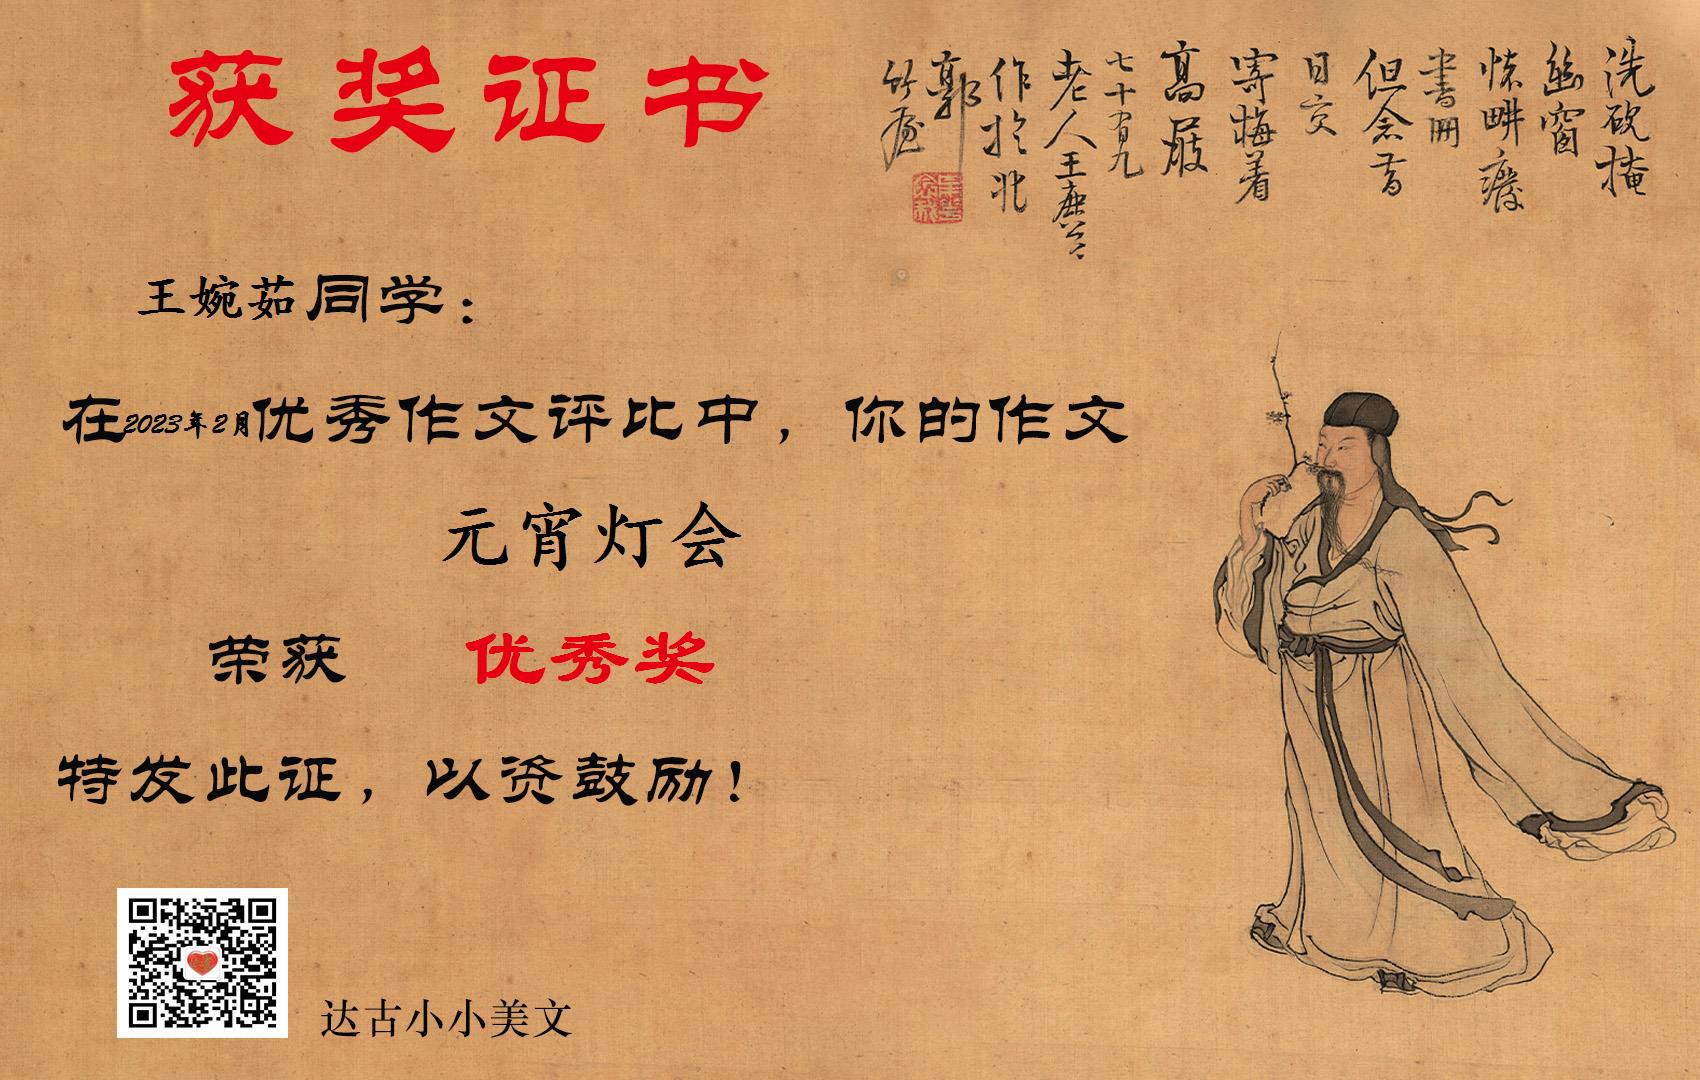 获奖证书
洗砚掩
幽窗
怀畊癈
書冊
但念昔
日交
寄梅着
高展
七十有九
老人王
作於北
郭
竹
王婉茹同学：
在2023年2月优秀作文评比中，你的作文
元宵灯会
荣获 优秀奖
特发此证，以资鼓励！
达古小小美文